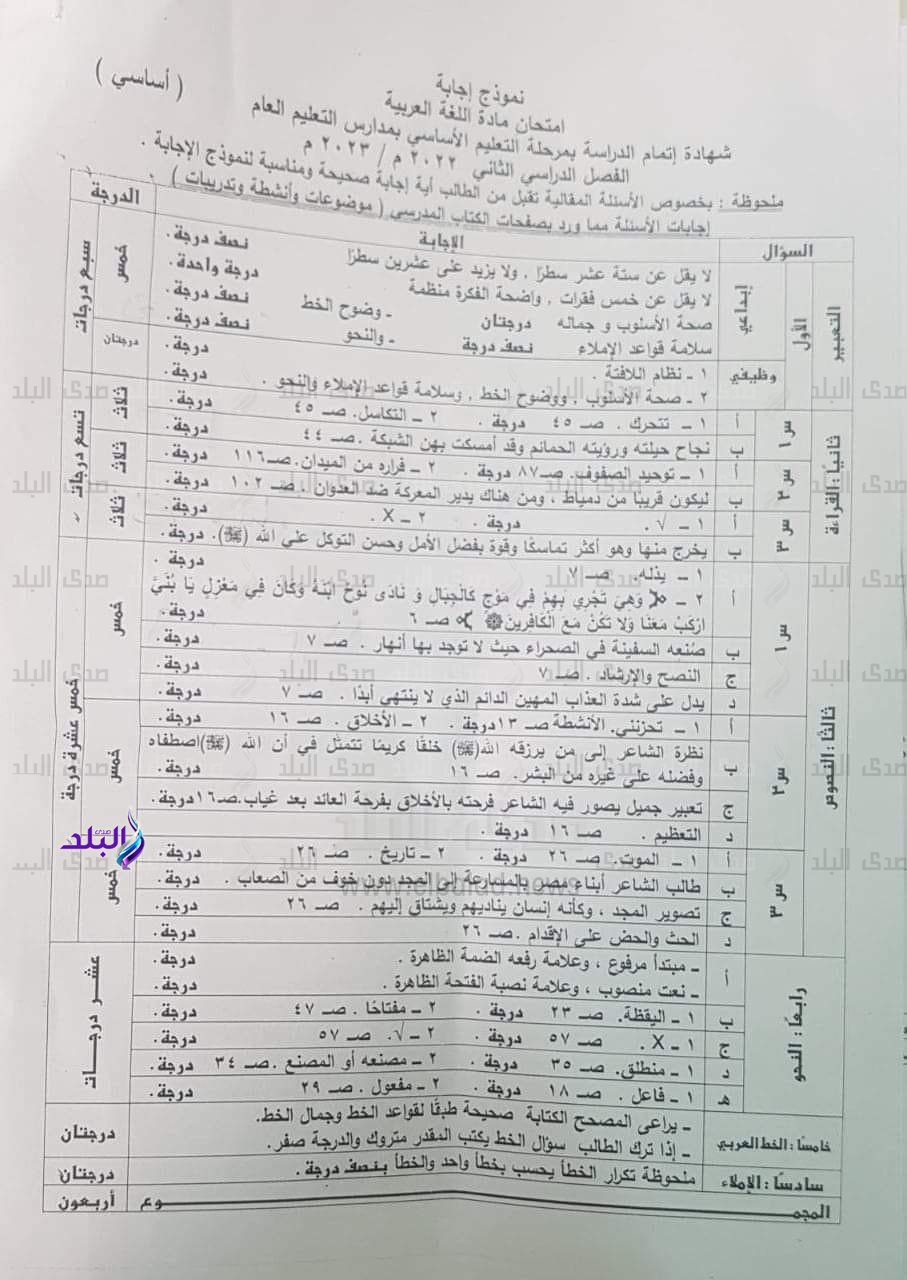 ( أساسي )
نموذج إجابة
امتحان مادة اللغة العربية
شهادة إتمام الدراسة بمرحلة التعليم الأساسي بمدارس التعليم العام
الفصل الدراسي الثاني ٢٠٢٢ م / ٢٠٢٣ م
ملحوظة : بخصوص الأسئلة المقالية تقبل من الطالب أية إجابة صحيحة ومناسبة لنموذج الإجابة .
إجابات الأسئلة مما ورد بصفحات الكتاب المدرسي ( موضوعات وأنشطة وتدريبات )
السؤال الإجابة الدرجة
التعبير الأول إبداعي لا يقل عن ستة عشر سطرًا , ولا يزيد على عشرين سطرًا نصف درجة . خمس سبع درجات
لا يقل عن خمس فقرات , واضحة الفكرة منظمة درجة واحدة .
صحة الأسلوب و جماله درجتان ـ وضوح الخط نصف درجة .
سلامة قواعد الإملاء نصف درجة ـ والنحو نصف درجة .
وظيفي ١ ـ نظام اللافتة . درجة . درجتان
٢ ـ صحة الأسلوب , ووضوح الخط , وسلامة قواعد الإملاء والنحو . درجة .
ثانيًا : القراءة س١ أ ١ ـ تتحرك . صـ ٤٥ درجة . ٢ ـ التكاسل . صـ ٤٥ درجة . ثلاث تسع درجات
ب نجاح حيلته ورؤيته الحمائم وقد أمسكت بهن الشبكة . صـ ٤٤ درجة .
س٢ أ ١ ـ توحيد الصفوف. صـ ٨٧ درجة . ٢ ـ فراره من الميدان. صـ ١١٦ درجة . ثلاث
ب ليكون قريبًا من دمياط , ومن هناك يدير المعركة ضد العدوان . صـ ١٠٢ درجة .
س٣ أ ١ ـ √ . درجة . ٢ ـ X . درجة . ثلاث
ب يخرج منها وهو أكثر تماسكًا وقوة بفضل الأمل وحسن التوكل على الله (ﷻ). درجة .
ثالثًا : النصوص س١ أ ١ ـ يذله. صـ ٧ درجة . خمس خمس عشرة درجة
٢ ـ وَهِيَ تَجْرِي بِهِمْ فِي مَوْجٍ كَالْجِبَالِ وَ نَادَى نُوحٌ ابْنَهُ وَكَانَ فِي مَعْزِلٍ يَا بُنَيَّ
ارْكَبْ مَعَنَا وَلَا تَكُنْ مَعَ الْكَافِرِينَ صـ ٦ درجة .
ب صُنعه السفينة في الصحراء حيث لا توجد بها أنهار . صـ ٧ درجة .
ج النصح والإرشاد . صـ ٧ درجة .
د يدل على شدة العذاب المهين الدائم الذي لا ينتهي أبدًا . صـ ٧ درجة .
س٢ أ ١ ـ تحزنني. الأنشطة صـ ١٣ درجة . ٢ ـ الأخلاق . صـ ١٦ درجة . خمس
ب نظرة الشاعر إلى من يرزقه الله(ﷻ) خلقًا كريمًا تتمثل في أن الله (ﷻ)اصطفاه
وفضله على غيره من البشر. صـ ١٦ درجة .
ج تعبير جميل يصور فيه الشاعر فرحته بالأخلاق بفرحة العائد بعد غياب.صـ١٦ درجة .
د التعظيم . صـ ١٦ درجة .
س٣ أ ١ ـ الموت. صـ ٢٦ درجة . ٢ ـ تاريخ . صـ ٢٦ درجة . خمس
ب طالب الشاعر أبناء مصر بالمسارعة إلى المجد دون خوف من الصعاب . درجة .
ج تصوير المجد ، وكأنه إنسان يناديهم ويشتاق إليهم . صـ ٢٦ درجة .
د الحث والحض على الإقدام . صـ ٢٦ درجة .
رابعًا : النحو أ ـ مبتدأ مرفوع ، وعلامة رفعه الضمة الظاهرة . درجة . عشر درجات
ـ نعت منصوب ، وعلامة نصبة الفتحة الظاهرة . درجة .
ب ١ ـ اليقظة. صـ ٢٣ درجة . ٢ ـ مفتاحًا . صـ ٤٧ درجة .
ج ١ ـ X . صـ ٥٧ درجة . ٢ ـ √. صـ ٥٧ درجة .
د ١ ـ منطلق. صـ ٣٥ درجة . ٢ ـ مصنعه أو المصنع . صـ ٣٤ درجة .
هـ ١ ـ فاعل . صـ ١٨ درجة . ٢ ـ مفعول . صـ ٢٩ درجة .
خامسًا : الخط العربي ـ يراعى المصحح الكتابة صحيحة طبقًا لقواعد الخط وجمال الخط. درجتان
ـ إذا ترك الطالب سؤال الخط يكتب المقدر متروك والدرجة صفر.
سادسًا : الإملاء ملحوظة تكرار الخطأ يحسب بخطأ واحد والخطأ بنصف درجة . درجتان
المجمـــوع أربعون
صدى البلد
www.elbalad.news